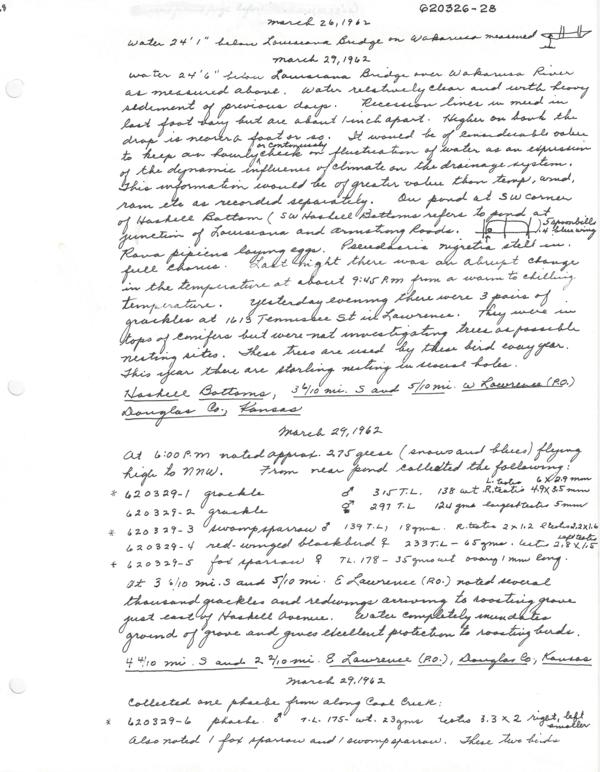 620326-28
March 26, 1962
Water 24'1" below Louisiana Bridge on Wakarusa measured
March 29, 1962
Water 24'6" below Louisiana Bridge over Wakarusa River
as measured above. Water relatively clear and with heavy
sediment of previous days. Recession lines in mud in
last foot vary but are about 1 inch apart. Higher on bank the
drop is nearer a foot or so. It would be of considerable value
to keep an hourly or continuously check on fluctuation of water as an expression
of the dynamic influence of climate on the drainage system.
This information would be of greater value than temp, wind,
rain etc as recorded separately. On pond at SW corner
of Haskell Bottom (SW Haskell Bottoms refers to pond at
junction of Louisiana and Armstrong Roads. 5 spoonbills
4 bluewing
Rana pipiens laying eggs. Pseudacris nigrita still in
full chorus. Last night there was an abrupt change
in the temperature at about 9:45 P.M from a warm to chilling
temperature. Yesterday evening there were 3 pairs of
grackles at 1613 Tennessee St in Lawrence. They were in
tops of conifers but were not investigating trees as possible
nesting sites. These trees are used by these bird every year.
This year there are starling nesting in several holes.
Haskell Bottoms, 3 6/10 mi. S and 5/10 mi. W Lawrence (P.O.)
Douglas Co., Kansas
March 29, 1962
At 6:00 P.M noted approx. 275 geese (snows and blues) flying
high to NNW. From near pond collected the following:
* 620329-1 grackle ♂ 315 T.L. 138 wt L. testis 6 x 2.9 mm R. testis 4.9 x 3.5 mm
620329-2 grackle ♂ 297 T.L 124 gms largest testis 5 mm
* 620329-3 swamp sparrow ♂ 139 T.L; 18 gms. R. testis 2 x 1.2 L testis 2.2 x 1.6
620329-4 red-winged blackbird ♂ 233 T.L - 65 gms. left testis 2.8 x 1.5
* 620329-5 fox sparrow ♀ TL. 178 - 35 gms wt ovary 1 mm long.
At 3 6/10 mi. S and 5/10 mi. E Lawrence (P.O.) noted several
thousand grackles and redwings arriving to roosting grove
just east of Haskell Avenue. Water completely inundates
ground of grove and gives excellent protection to roosting birds.
4 4/10 mi. S and 2 2/10 mi. E Lawrence (P.O.), Douglas Co, Kansas
March 29, 1962
Collected one phoebe from along Coal Creek:
* 620329-6 phoebe ♂ T.L. 175 - wt. 23 gms testis 3.3 x 2 right, left smaller
Also noted 1 fox sparrow and 1 swamp sparrow. These two birds